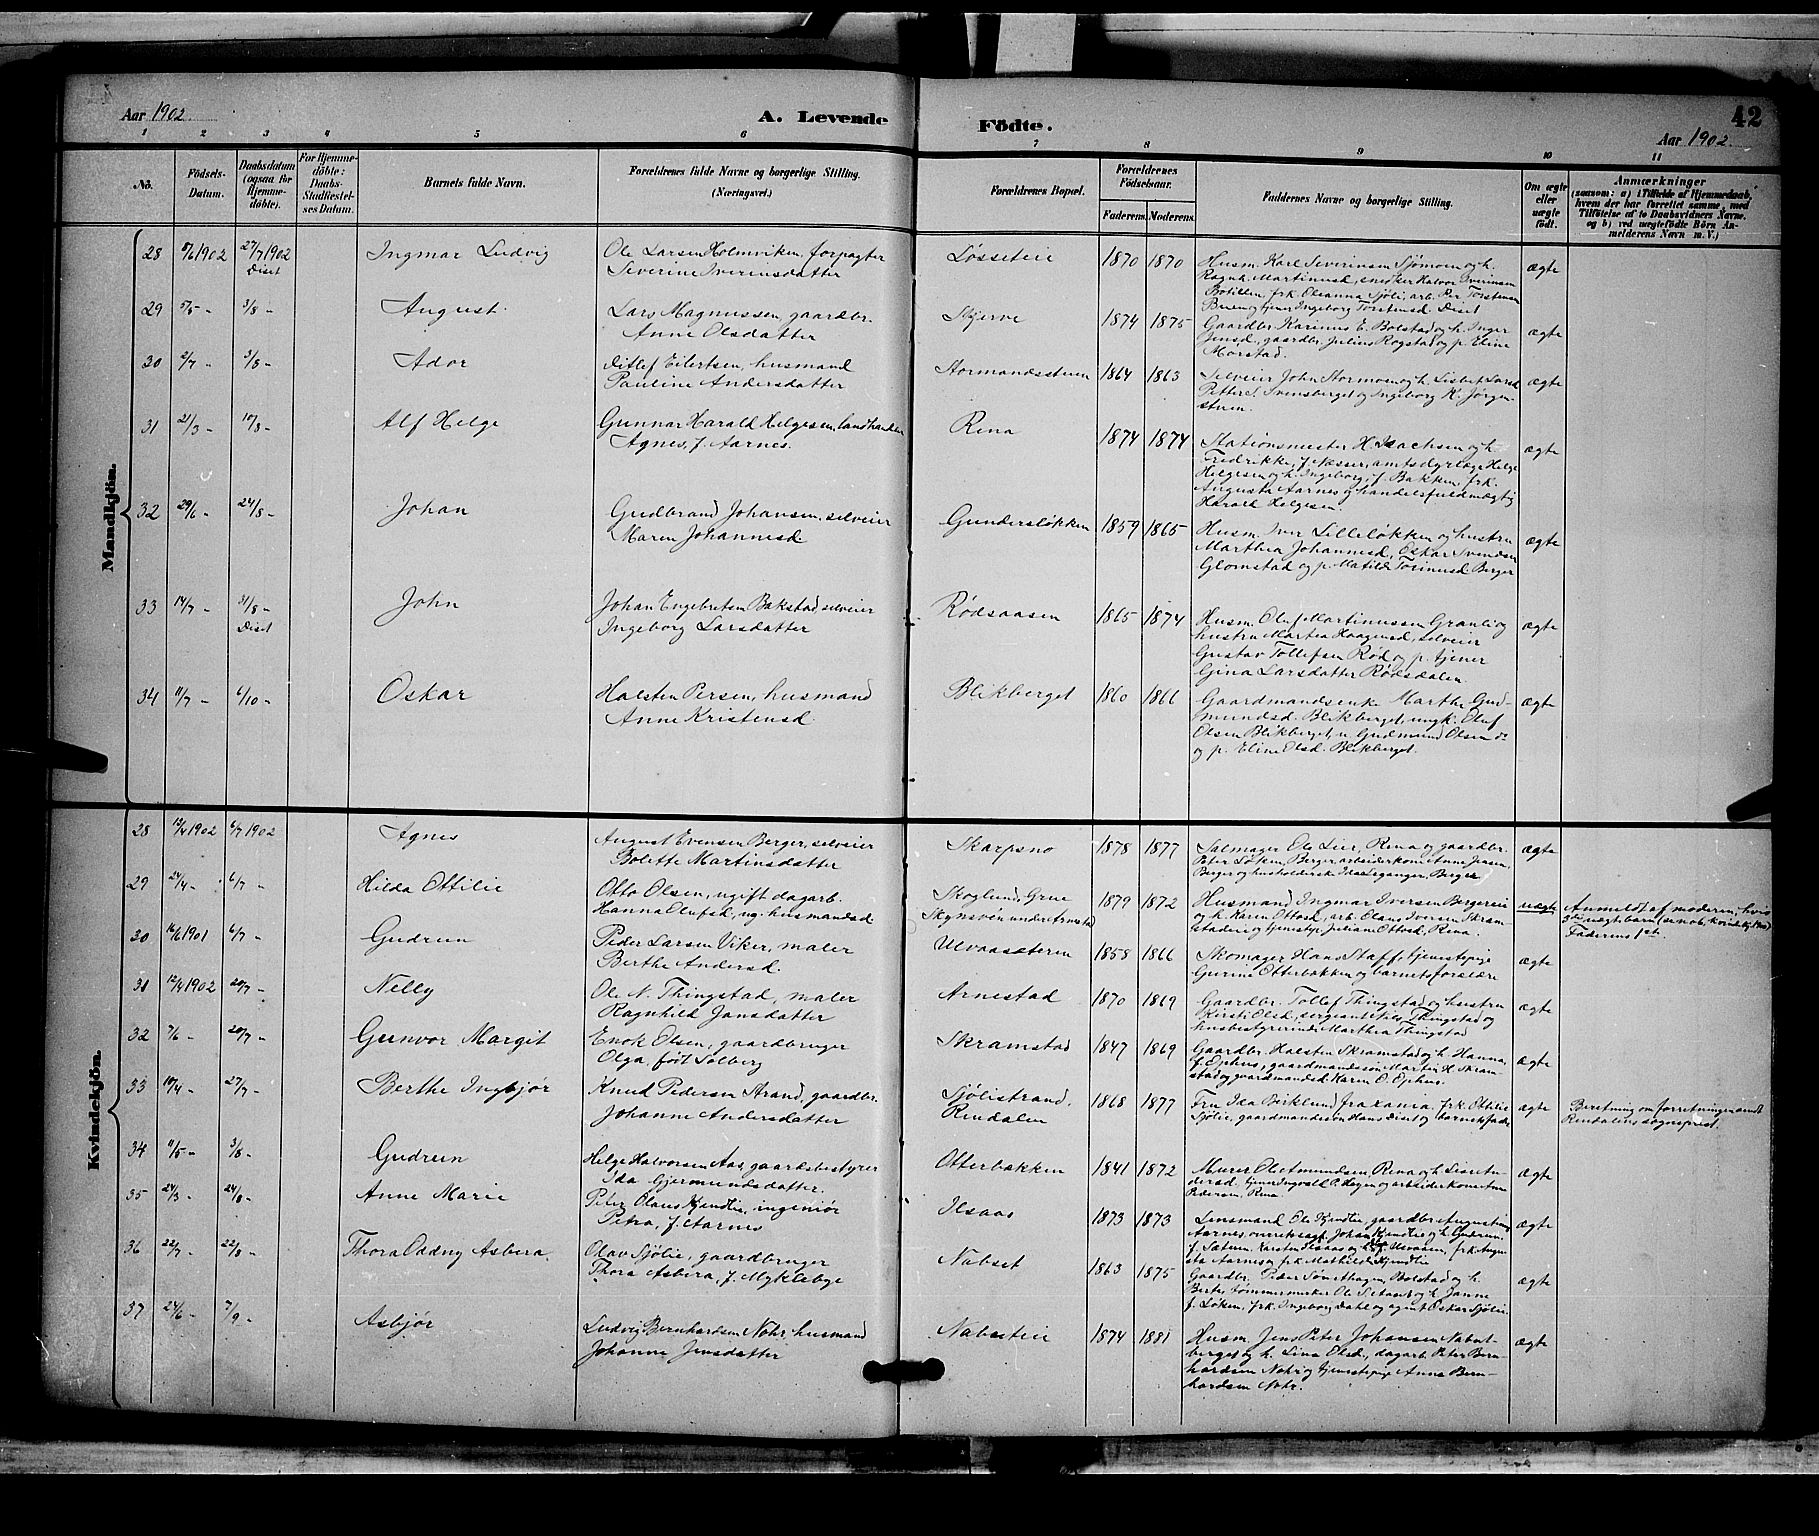 Aar 1902.
A. Levende Födte.
42
Aar 1902.
1 2 3 4 5 6 7 8 9 10 11
No. Födsels-Datum. Daabsdatum (ogsaa for Hjemmedöbte). For Hjemmedöbte: Daabs-Stadfestelses Datum. Barnets fulde Navn. Forældrenes fulde Navne og borgerlige Stilling. (Næringsvei.) Forældrenes Bopæl. Forældrenes Födselsaar. Faderens. Moderens. Faddernes Navne og borgerlige Stilling. Om ægte eller uægte födt. Anmærkninger
(saasom: a) i Tilfælde af Hjemmedaab, hvem der har forrettet samme, med Tilföielse af to Daabsvidners Navne, og b) ved uægtefödte Börn Anmelderens Navn m. V.)
Mandkjön.
28 5/6 1902 27/7 1902 Diset Ingmar Ludvig Ole Larsen Holmviken, forpagter
Severine Iverensdatter Løsseteie 1870 1870 Husm. Karl Severinsen Sjømoen og h.
Ragnh. Martinusd, snedker Halvor Iverinsen
Botillen, frk. Oleanna Sjöli, arb. Per Torstensen
Berien og tjener Ingeborg Torstensd. Diset ægte
29 5/5 - 3/8 - August Lars Magnussen, gaardbr.
Anne Olsdatter Skjerve 1874 1875 Gaardbr. Karinus E. Bolstad og h. Inger
Jensd., gaardbr. Julius Rogstad og p. Eline
Morstad. ægte
30 2/7 - 3/8 - Ador Ditlef Eilertsen, husmand
Pauline Andersdatter Stormandsstuen 1864 1863 Selveier John Stormoen og h. Lisbet Larsd
Petter S. Svensberget og Ingeborg K. Jörgenstuen. ægte
31 21/3 - 10/8 - Alf Helge Gunnar Harald Helgesen, landhandler
Agnes, f. Aarnes. Rena 1874 1874 Stationsmester H. Isachsen og h.
Fredrikke, f. Næsser, amtsdyrlæge Helge
Helgesen og h. Ingeborg, f. Bakken, frk.
Augusta Aarnes og handelsfuldmægtig
Harald Helgesen. ægte
32 29/6 - 24/8 - Johan Gudbrand Johansen, selveier
Maren Johannesd Gundersløkken 1859 1865 Husm. Iver Lilleløkken og hustru
Marthea Johannesd, Oskar Svendsen
Glomstad og p. Matilde Torinusd. Berger ægte
33 14/7 - 31/8 - Diset John Johan Engebretsen Bakstad, selveier
Ingeborg Larsdatter Rødsaasen 1865 1874 Husm. Oluf Martinussen Granli og
hustru Martea Haagensd, selveier
Gustav Tollefsen Rød og p. tjener
Gina Larsdatter Rødsdalen. ægte
34 11/7 - 6/10 - Oskar Halsten Persen, husmand
Anne Kristensd. Blikberget 1860 1866 Gaardmandsenke Marthe Gudmundsd.
Blikberget, ungk. Oluf
Olsen Blikberget, u. Gudmund Olsen do
og p. Eline Olsd. Blikberget. ægte
Kvindekjön.
28 13/4 1902 6/7 1902 Agnes August Evensen Berger, selveier
Bolette Martinsdatter Skarpsno 1878 1877 Salmager Ole Lier, Rena og gaardbr.
Peter Løken, Berger arbeiderkone Anne Jensen,
Berger og husholderske Ida Erganger, Berger ægte
29 24/4 - 6/7 - Hilda Ottilie Otto Olsen, ugift dagarb.
Hanna Olufsd, ug. husmandsd Skoglund, Grue
Skynsvén under Arnestad 1879 1872 Husmand Ingmar Iversen Bergereie
og h. Karen Ottosd, arb. Olaus Iversen Skramstadeie
og tjenstp. Juliane Ottosd, Rena. uægte Anmeldt af moderen, hvis
2det uægte barn
Faderens 1ste.
30 16/6 1901 6/7 - Gudrun Peder Larsen Viker, maler
Berthe Andersd. Ulvaasæteren 1858 1866 Skomager Hans Staff, tjenestepige
Gurine Otterbækken og barnets forældre ægte
31 12/4 1902 20/7 - Nelly Ole N. Thingstad, maler
Ragnhild Jansdatter Arnestad 1870 1869 Gaardbr. Tollef Thingstad og hustru
Kirsti Olsd, sergeant Nils Thingstad og
husbestyrerinde Marthea Thingstad ægte
32 7/6 - 20/7 - Gunvor Margit Enok Olsen, gaardbruger
Olga, født Solberg Skramstad 1847 1869 Gaardbr. Halsten Skramstad og h. Hanna
f. Ophus, gaardmandssön Martin H. Skramstad
og gaardmandsd. Karen O. Ophus. ægte
33 10/4 - 27/7 - Berthe Ingbjør Knud Pedersen Strand, gaardbr.
Johanne Andersdatter Sjölistrand, Rendalen 1868 1877 Fru Ida Birklund fra Xania, frk. Ottilie
Sjölie, gaardmandssön Hans Diset og barnets fader ægte Beretning om forretningen sendt
Rendalens sogneprest.
34 11/5 - 3/8 - Gudrun Helge Halvorsen Aas, gaardsbestyrer
Ida Gjermundsdatter. Otterbækken 1841 1872 Murer Ole Amundsen, Rena og h. Lise Andersd.
tjener Ingvald P. Hagen og arbeiderkone Anne
Pedersen, Rena. ægte
35 24/3 - 24/8 - Anne Marie Peter Olaus Kjendlie, ingeniør
Petra, f. Aarnes Ilsaas 1873 1873 Lensmand Ole Kjendlie gaardbr. Augustinus
Aarnes, overretssagf. Johan Kjendlie og h. Gudrun,
f. Sætrum, Karsten Ilsaas og h. f. Ulvaaen, frk. Augusta
Aarnes og frk. Mathilde Kjendlie ægte
36 22/7 - 22/8 - Thora Oddny Asbera Olav Sjölie, gaardbruger
Thora Asbera, f. Myklebye Nabset 1863 1875 Gaardbr. Peder Sønsthagen, Bolstad og h.
Berte, tømmermerker Ole Setaas og h. Janne
f. Løken, frk. Ingeborg Dahl og agent Oskar Sjölie. ægte
37 24/6 - 7/9 - Asbjør Ludvig Bernhardsen Nohr, husmand
Johanne Jensdatter Nabseteie 1874 1881 Husm. Jens Peter Johansen Nabsetberget
og h. Lina Olsd., dagarb. Peter Bernhardsen
Nohr og tjenestepige Anna Bernhardsen
Nohr. ægte